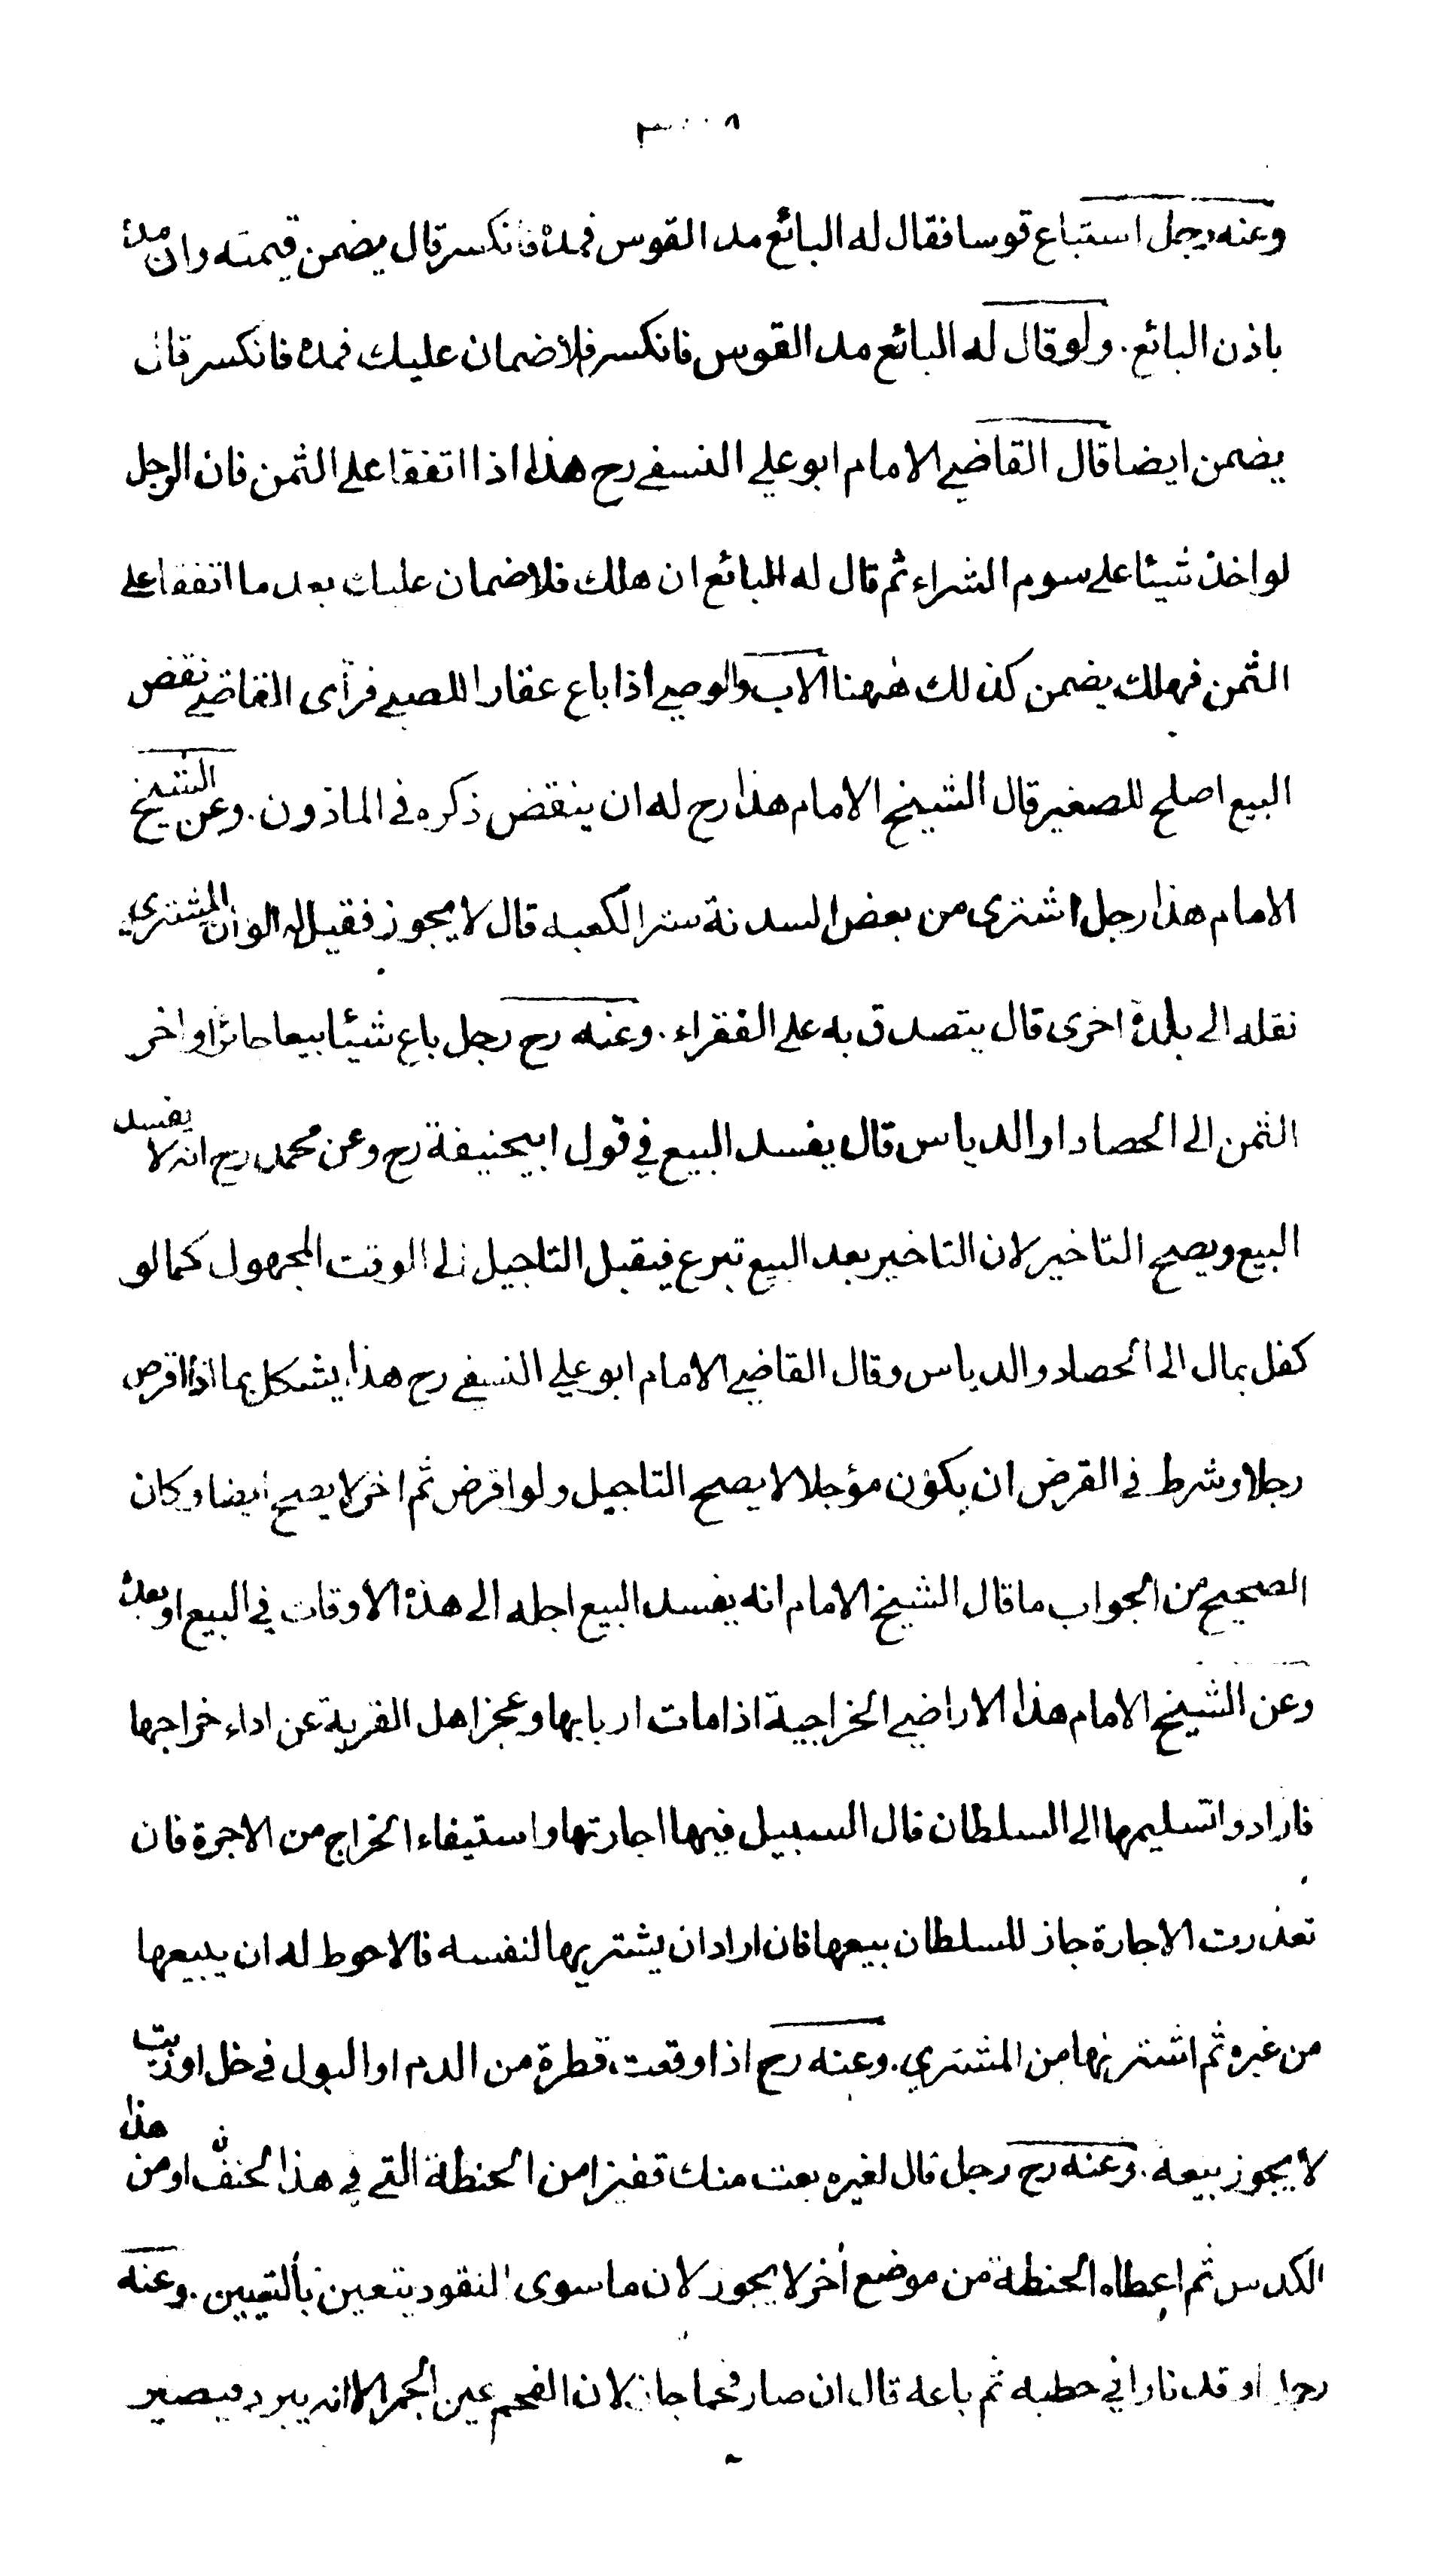 وعنه رجل استباع قوسا فقال له البائع مد القوس فمده فانكسر قال يضمن قيمته وان مده
باذن البائع. ولو قال له البائع مد القوس فانكسر فلا ضمان عليك فمده فانكسر قال
يضمن ايضا قال القاضي الامام ابو علي النسفي رح هذا اذا اتفقا على الثمن فان الرجل
لو اخذ شيئا على سوم الشراء ثم قال له البائع ان هلك فلا ضمان عليك بعد ما اتفقا على
الثمن فهلك يضمن كذلك ههنا الاب والوصي اذا باع عقارا للصبي فرأى القاضي نقض
البيع اصلح للصغير قال الشيخ الامام هذا رح له ان ينقض ذكره في الماذون. وعن الشيخ
الامام هذا رجل اشترى من بعض السدنة ستر الكعبه قال لا يجوز فقيل له لو ان المشتري
نقله الى بلدة اخرى قال يتصدق به على الفقراء. وعنه رح رجل باع شيئا بيعا جائزا واخر
الثمن الى الحصاد او الدياس قال يفسد البيع في قول ابيحنيفة رح وعن محمد رح انه لا يفسد
البيع ويصح التاخير لان التاخير بعد البيع تبرع فيقبل التاجيل الى الوقت المجهول كما لو
كفل بمال الى الحصاد والدياس وقال القاضي الامام ابو علي النسفي رح هذا يشكل بما اذا اقرض
رجلا وشرط في القرض ان يكون مؤجلا لا يصح التاجيل ولو اقرض ثم اخر لا يصح ايضا وكان
الصحيح من الجواب ما قال الشيخ الامام انه يفسد البيع اجله الى هذه الاوقات في البيع او بعده
وعن الشيخ الامام هذا الاراضي الخراجية اذا مات اربابها وعجز اهل القرية عن اداء خراجها
فارادوا تسليمها الى السلطان قال السبيل فيها اجارتها واستيفاء الخراج من الاجرة فان
تعذرت الاجارة جاز للسلطان بيعها فان اراد ان يشتريها لنفسه فالاحوط له ان يبيعها
من غيره ثم اشتريها من المشتري. وعنه رح اذا وقعت قطرة من الدم او البول في خل او زيت
لا يجوز بيعه. وعنه رح رجل قال لغيره بعت منك قفيزا من الحنطة التي في هذا الخنف او من هذا
الكدس ثم اعطاه الحنطة من موضع أخر لا يجوز لان ما سوى النقود يتعين بالتعيين. وعنه
رجل اوقد نارا في حطبه ثم باعه قال ان صار فحما جاز لان الفحم عين الجمر الا انه يبرد فيصير